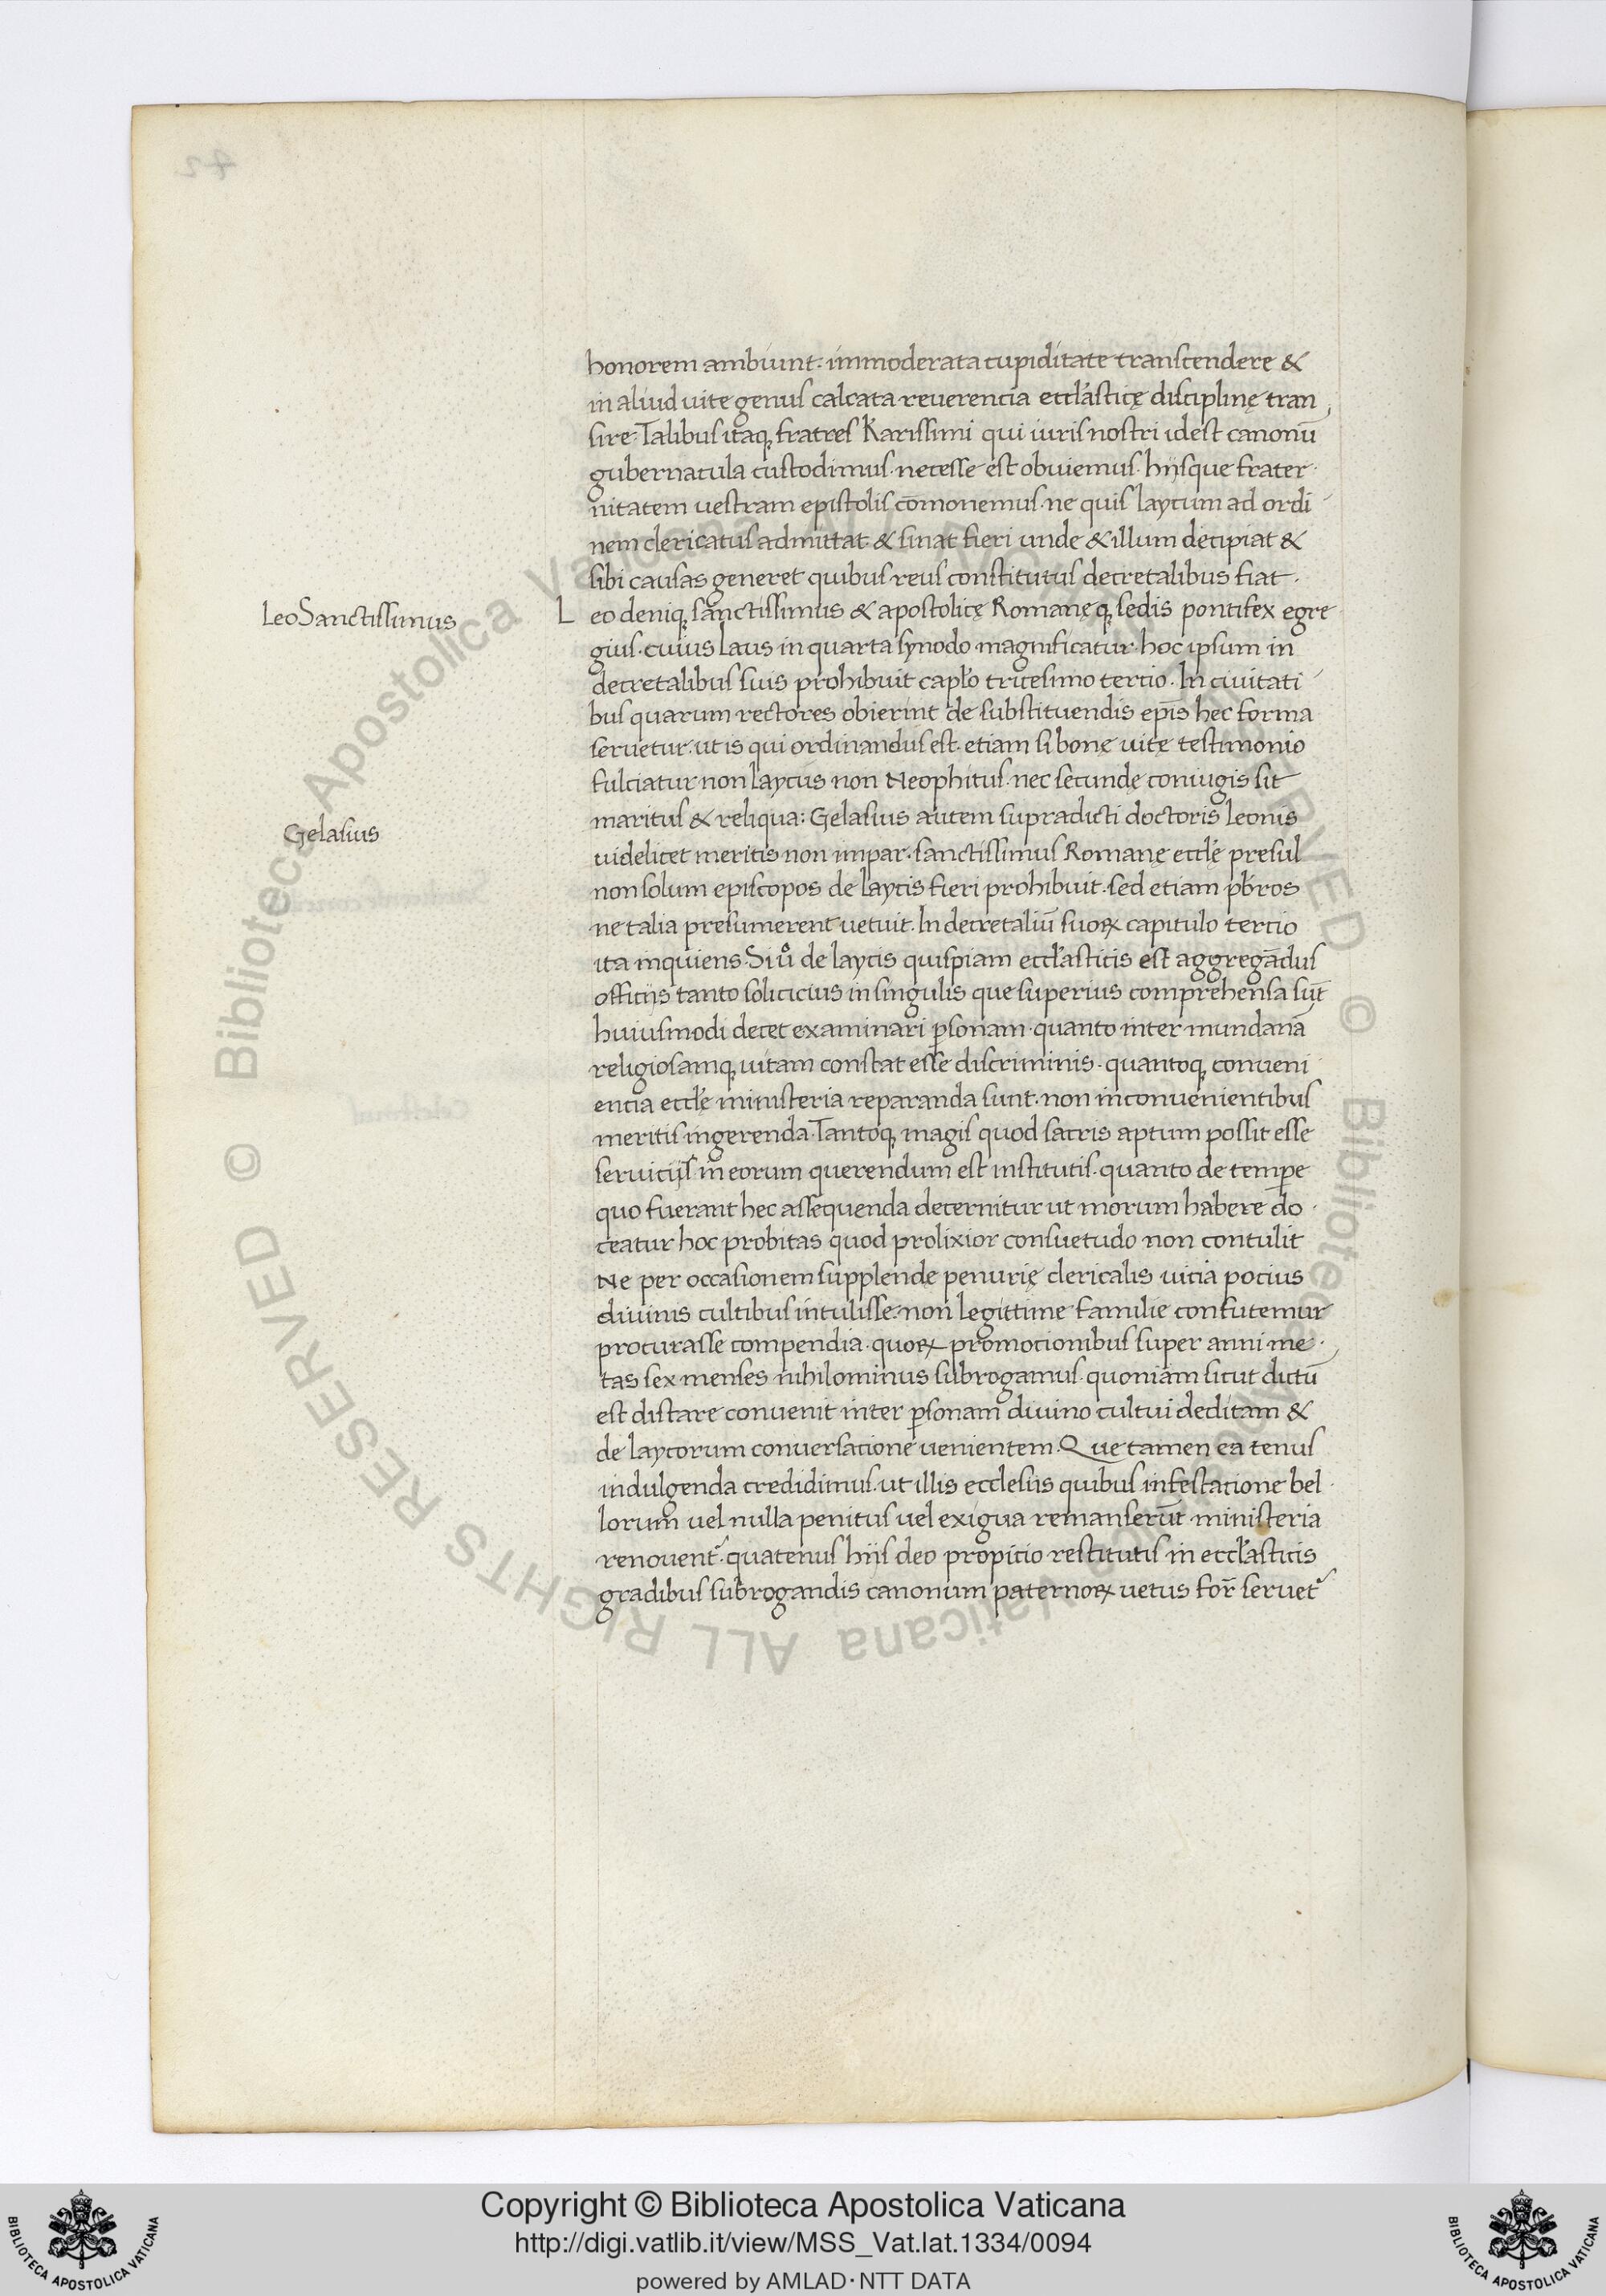 honorem ambiunt· immoderata cupiditate transcendere &
in aliud uite genus calcata reuerencia eccl̓asticę disciplinę tran
sire· Talibus itaq, fratres Karissimi qui iuris nostri idest canonū
gubernacula custodimus· necesse est obuiemus· hijsque frater
nitatem uestram epistolis cōmonemus· ne quis laycum ad ordi
nem clericatus admittat & sinat fieri unde & illum decipiat &
sibi causas generet quibus reus constitutus decretalibus fiat·
Leo Sanctissimus
Leo deniq, sanctissimus & apostolicę Romanęq, sedis pontifex egre
gius· cuius laus in quarta synodo magnificatur· hoc ipsum in
decretalibus suis prohibuit capl̓o tricesimo tercio· In ciuitati
bus quarum rectores obierint de substituendis ep̄is hec forma
seruetur· ut is qui ordinandus est· etiam si bonę uitę testimonio
fulciatur non laycus non Neophitus· nec secundę coniugis sit
maritus & reliqua: Gelasius autem supradicti doctoris Leonis
Gelasius
uidelicet meritis non impar· sanctissimus Romanę eccl̓ę presul
non solum episcopos de laycis fieri prohibuit· sed etiam pb̓ros
ne talia presumerent uetuit· In decretaliū suoꝝ capitulo tercio
ita inquiens· Si uͦ de laycis quispiam eccl̓asticis est aggregādus
officijs tanto solicicius in singulis que superius comprehensa sūt
huiusmodi decet examinari ꝑsonam· quanto inter mundanā
religiosamq, uitam constat esse discriminis· quantoq, conueni
encia eccl̓ę ministeria reparanda sunt· non inconuenientibus
meritis ingerenda· Tantoq, magis quod sacris aptum possit esse
seruicijs in eorum querendum est institutis· quanto de temꝑe
quo fuerant hec assequenda decernitur ut morum habere do
ceatur hoc probitas quod prolixior consuetudo non contulit
Ne per occasionem supplendę penurię clericalis uicia pocius
diuinis cultibus intulisse· non legittime familie confutemur
procurasse compendia· quoꝝ promocionibus super anni me
tas sex menses nihilominus subrogamus· quoniam sicut dictū
est distare conuenit inter ꝑsonam diuino cultui deditam &
de laycorum conuersacione uenientem· Que tamen ea tenus
indulgenda credidimus· ut illis ecclesiis quibus infestacione bel
lorum uel nulla penitus uel exigua remanserūt ministeria
renouent᷑· quatenus hijs deo propicio restitutis in eccl̓asticis
gradibus subrogandis canonum paternoꝝ uetus for̄ seruet᷑
Copyright © Biblioteca Apostolica Vaticana
http://digi.vatlib.it/view/MSS_Vat.lat.1334/0094
powered by AMLAD·NTT DATA
BIBLIOTECA APOSTOLICA VATICANA
BIBLIOTECA APOSTOLICA VATICANA
© Biblioteca Apostolica Vaticana ALL RIGHTS RESERVED © Biblioteca Apostolica Vaticana ALL RIGHTS RESERVED